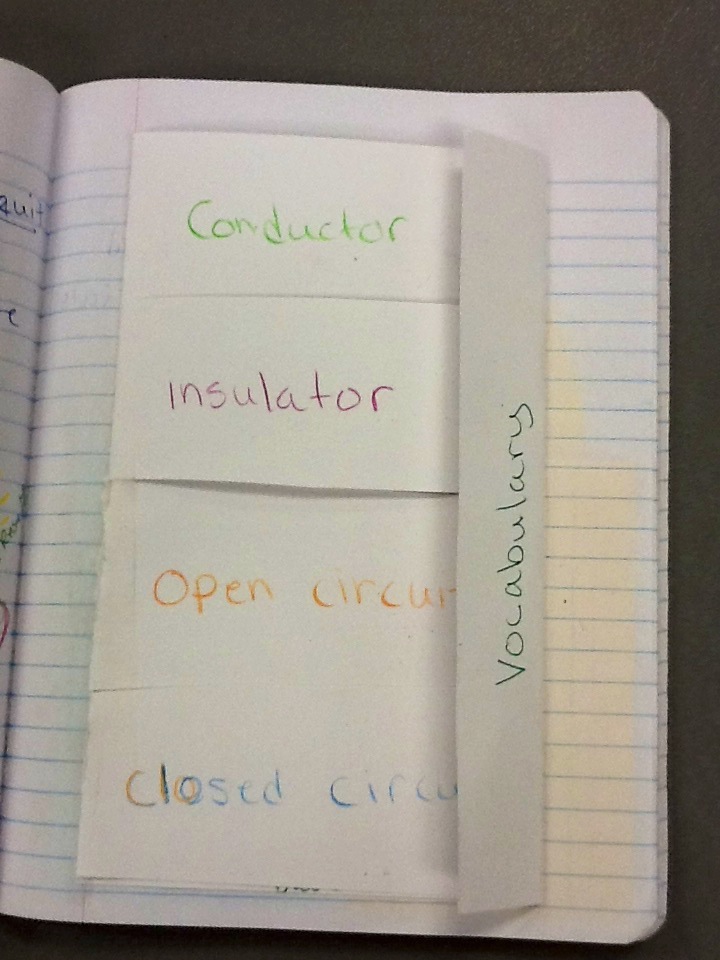 Conductor
insulator
Open circui
Closed circu
Vocabulary